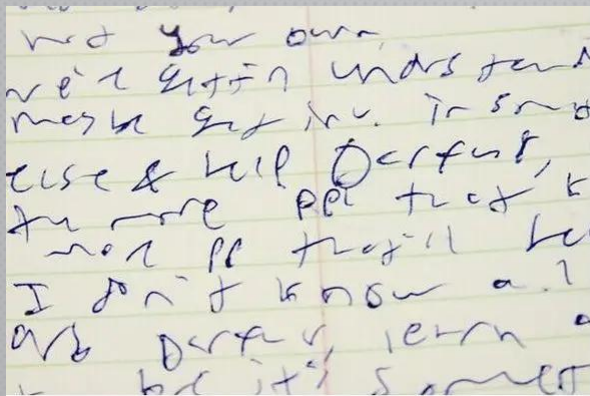 not your own
we're gettin undrstand
maybe get inv. in sm
else & help Darfur,
the more ppl that k
mor pp that'll he
I don't know a.l
arb Darfur, learn a
bc it's somet